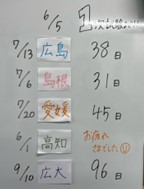 6/5
7/13 広島 38日
7/6 島根 31日
7/20 愛媛 45日
6/1 高知 お疲れさまでした
9/10 広大 96日